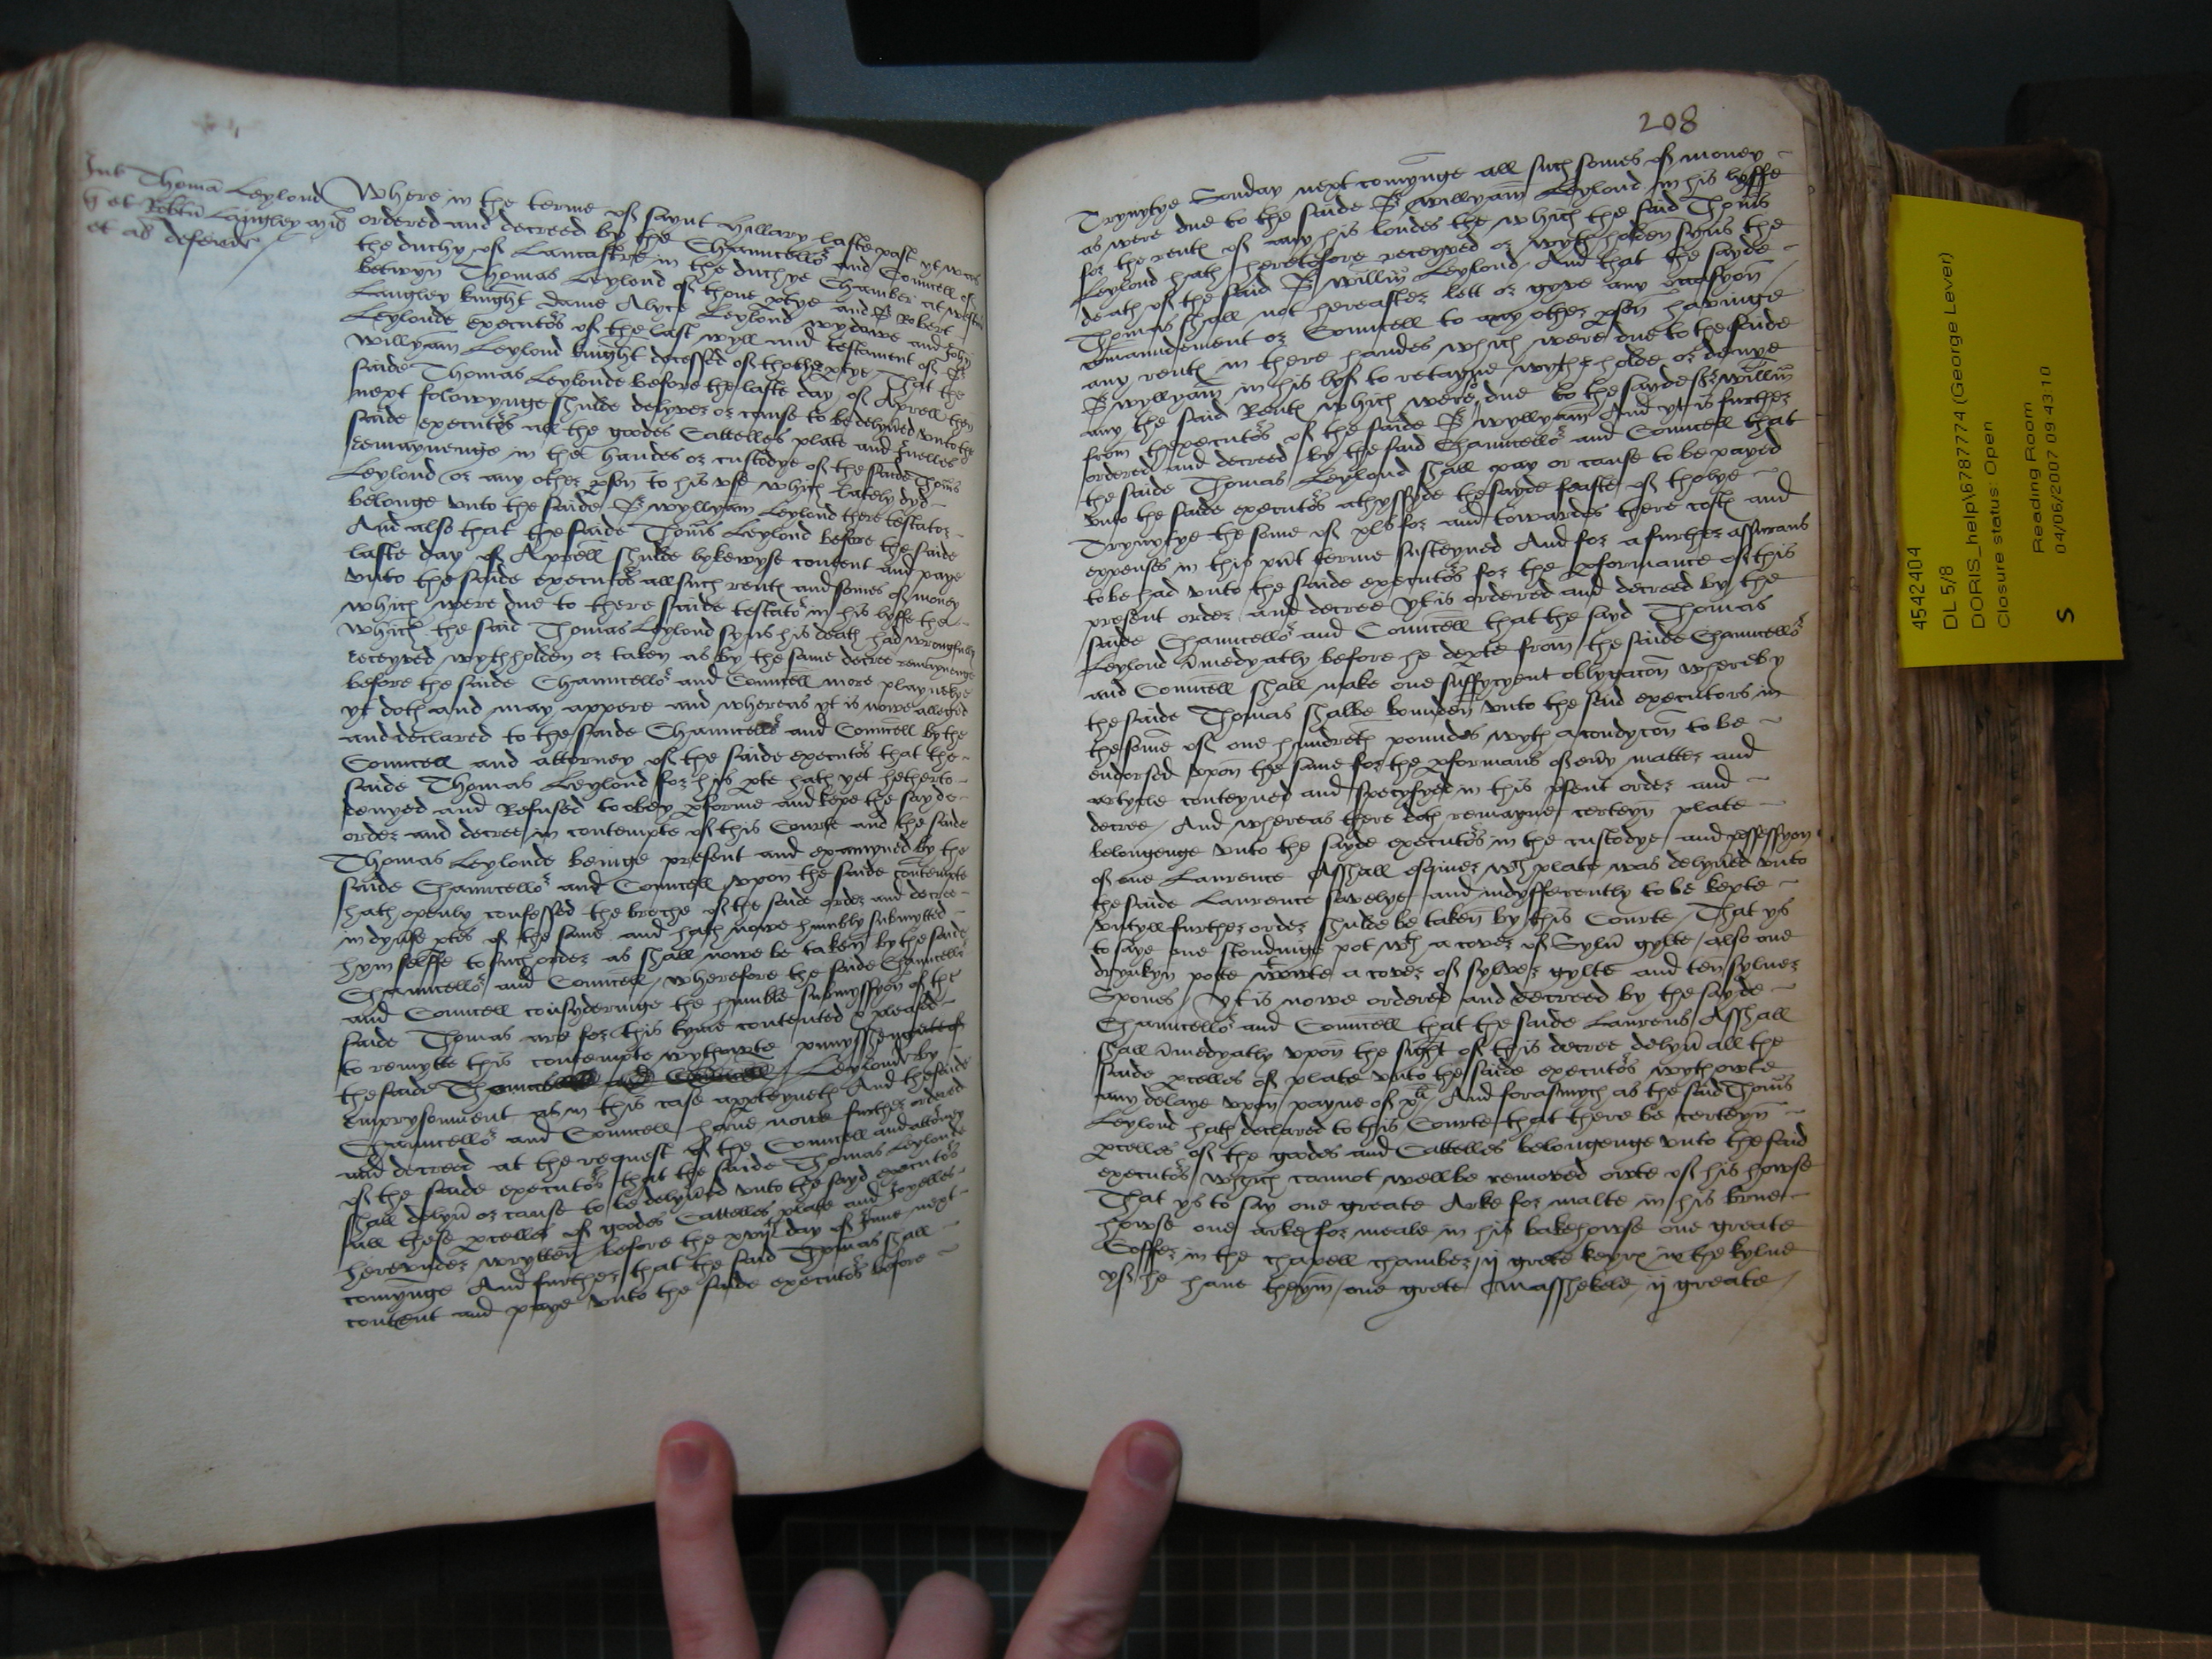 Int Thomā Leylond
q̄ et Robtū Langley mil
et al defend
Where in the terme of saynt Hillary laste past yt was
ordered and decreed by the Chauncellor and Councell of
the duchy of Lancastre in the duchye Chamber at westm
betwyn Thomas Leylond of thone ptye and Sr Robert
Langley knight dame Alyce Leylond wydowe and John
Leylonde executors of the last wyll and testament of Sr
Willyam Leylond knight decessed of thother ptye That the
saide Thomas Leylonde before the laste day of Aprell then
next folowynge shulde delyver or cause to be delyūed unto the
saide executors all the goodes Cattelles plate and Juelles
remaynenge in the handes or custodye of the saide Thoms
Leylond or any other psōn to his use which lately dyd
belonge unto the saide Sr Wyllyam Leylond there testator
And also that the saide Thoms Leylond before the saide
laste day of Aprell shulde lykewyse content and paye
unto the saide executors all such rentes and somes of money
which were due to there saide testator in his lyffe the
which the said Thomas Leylond syns his death had wrongfully
receyved wythholden or taken as by the same decree remaynenge
before the saide Chauncellor and Councell more playnelye
yt doth and may appere and whereas yt is nowe alleged
and declared to the saide Chauncellor and Councell by the
Councell and attorney of the saide executors that the
saide Thomas Leylond for his pte hath yet hetherto
denyed and Refused to obey pforme and kepe the sayde
order and decree in contempte of this Courte and the saide
Thomas Leylonde beinge present and examyned by the
saide Chauncellor and Councell upon the saide contempte
hath openly confessed the breche of the saide order and decree
in dyūse ptes of the same and hath nowe humbly submytted
hym selffe to such order as shall nowe be taken by the saide
Chauncellor and Councell / wherefore the saide Chauncellor
and Councell consyderinge the humble submyssyon of the
saide Thomas are for this tyme contented & pleased
to remytte this contempte wythowte punysshement of
the saide Thomas Leylond by
Imprysonment as in this case apperteyneth And the saide
Chauncellor and Councell have nowe further ordered
and decreed at the request of the Councell and attorney
of the saide executors that the saide Thomas Leylonde
shall delyū or cause to be delyūed unto the sayd executors
all these pcelles of goodes Cattelles plate and Joyelles
hereunder wrytten before the xviijth day of June next
comynge And further that the said Thomas shall
content and paye unto the saide executors before
208
Trynytye Sonday next comynge all such somes of money
as were due to the saide Sr Willyam Leylond in his lyffe
for the rentes of any his londes the which the said Thoms
Leylond hath heretofore receyved or wythholden syns the
death of the said Sr Willm Leylond / And that the sayde
Thomas shall not hereafter lett or gyve any occasyon
comaundement or Councell to any other pson havinge
any rentes in there handes which were due to the saide
Sr Wyllyam in his lyf to retayne wythholde or denye
any the said Rentes which were due to the sayde Sr Willm
from thexecutors of the saide Sr Wyllyam And yt is further
ordered and decreed by the said Chauncellor and Councell that
the saide Thomas Leylond shall pay or cause to be payed
unto the saide executors athyssyde the sayde feaste of tholye
Trynytye the some of xls for and towardes there costes and
expenses in this pnt terme susteyned And for a further assurans
to be had unto the saide executors for the pformance of this
present order and decree yt is ordered and decreed by the
saide Chauncellor and Councell that the sayd Thomas
Leylond īmedyatly before he depte from the saide Chauncellor
and Councell shall make one suffycyent oblygacon whereby
the saide Thomas shalbe bounden unto the said executors in
the some of one hundreth poundes wyth a condycon to be
endorsed upon the same for the pformans of eūy matter and
artycle conteyned and specyfyed in this psent order and
decree / And whereas there doth remayne certeyn plate
belongenge unto the sayde executors in the custodye and possessyon
of one Laurence Asshall esquier wch plate was delyūed unto
the saide Laurence savelye and indyfferently to be kepte
untyll further order shulde be taken by this Courte / That ys
to saye one stondinge pot wth a cover of Sylū gylte / also one
drynkyn potte wtowte a cover of sylver gylte and ten sylver
Spones / Yt is nowe ordered and decreed by the sayde
Chauncellor and Councell that the saide Laurens Asshall
shall īmedyatly upon the sight of this decree delyū all the
saide pcelles of plate unto the saide executors wythowte
any delaye upon payne of xli / And forasmych as the said Thoms
Leylond hath declared to this Courte that there be certeyn
pcelles of the goodes and Cattelles belongenge unto the said
executors which cannot well be removed owte of his howse
That ys to say one greate Arke for malte in his brue
howse one arke for meale in his bakehowse one greate
Coffer in the chapell chamber / ij grete keyrs in the kylne
yf he have theym / one grete Masshekele / ij greate
4542404
DL 5/8
DORIS_help\6787774 (George Lever)
Closure status: Open
Reading Room
S 04/06/2007 09:43:10